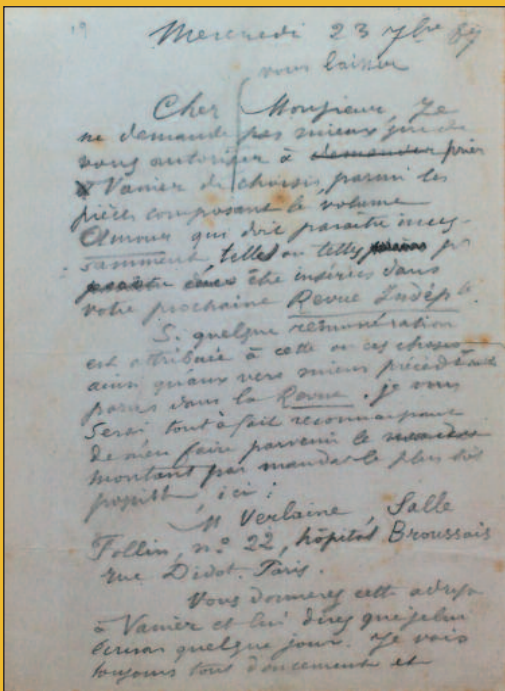 19
Mercredi 23 9bre 87
vous laisser
Cher Monsieur, Je
ne demande pas mieux que de
vous autoriser à demander prier
Vanier de choisir parmi les
pièces composant le volume
Amour qui doit paraître inces-
samment, telles ou telles
être insérées dans
votre prochaine Revue Indépte.
Si quelque rémunération
est attribuée à cette ou ces choses
ainsi qu'aux vers miens précédemment
parus dans la Revue, je vous
serai tout à fait reconnaissant
de m'en faire parvenir le
montant par mandat le plus tôt
possible, ici :
M Verlaine, Salle
Follin, no. 22, hôpital Broussais
rue Didot. Paris.
Vous donnerez cette adresse
à Vanier et lui direz que je lui
écrirai quelque jour. Je vais
toujours tout doucement et